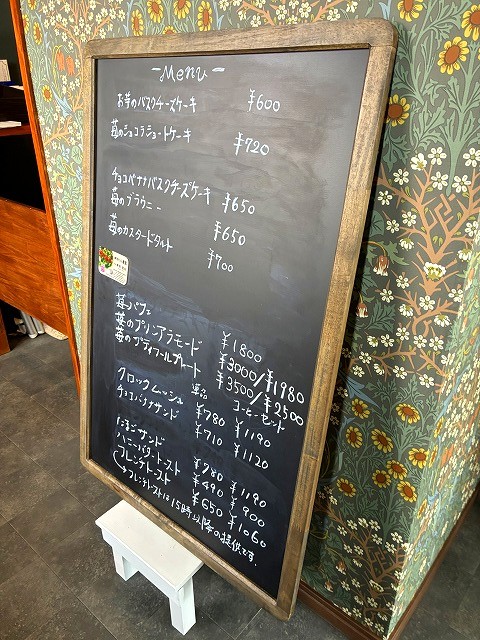 －Menu－
お芋のバスクチーズケーキ ¥600
苺のショコラショートケーキ ¥720
チョコバナナバスクチーズケーキ ¥650
苺のブラウニー ¥650
苺のカスタードタルト ¥700
苺パフェ ¥1800
苺のプリンアラモード ¥3000/¥1980
苺のプティフールプレート ¥3500/¥2500
単品 コーヒーセット
クロックムッシュ ¥780 ¥1190
チョコバナナサンド ¥710 ¥1120
たまごサンド ¥780 ¥1190
ハニーバタートースト ¥490 ¥900
フレンチトースト ¥650 ¥1060
(*フレンチトーストは15時以降の提供です.